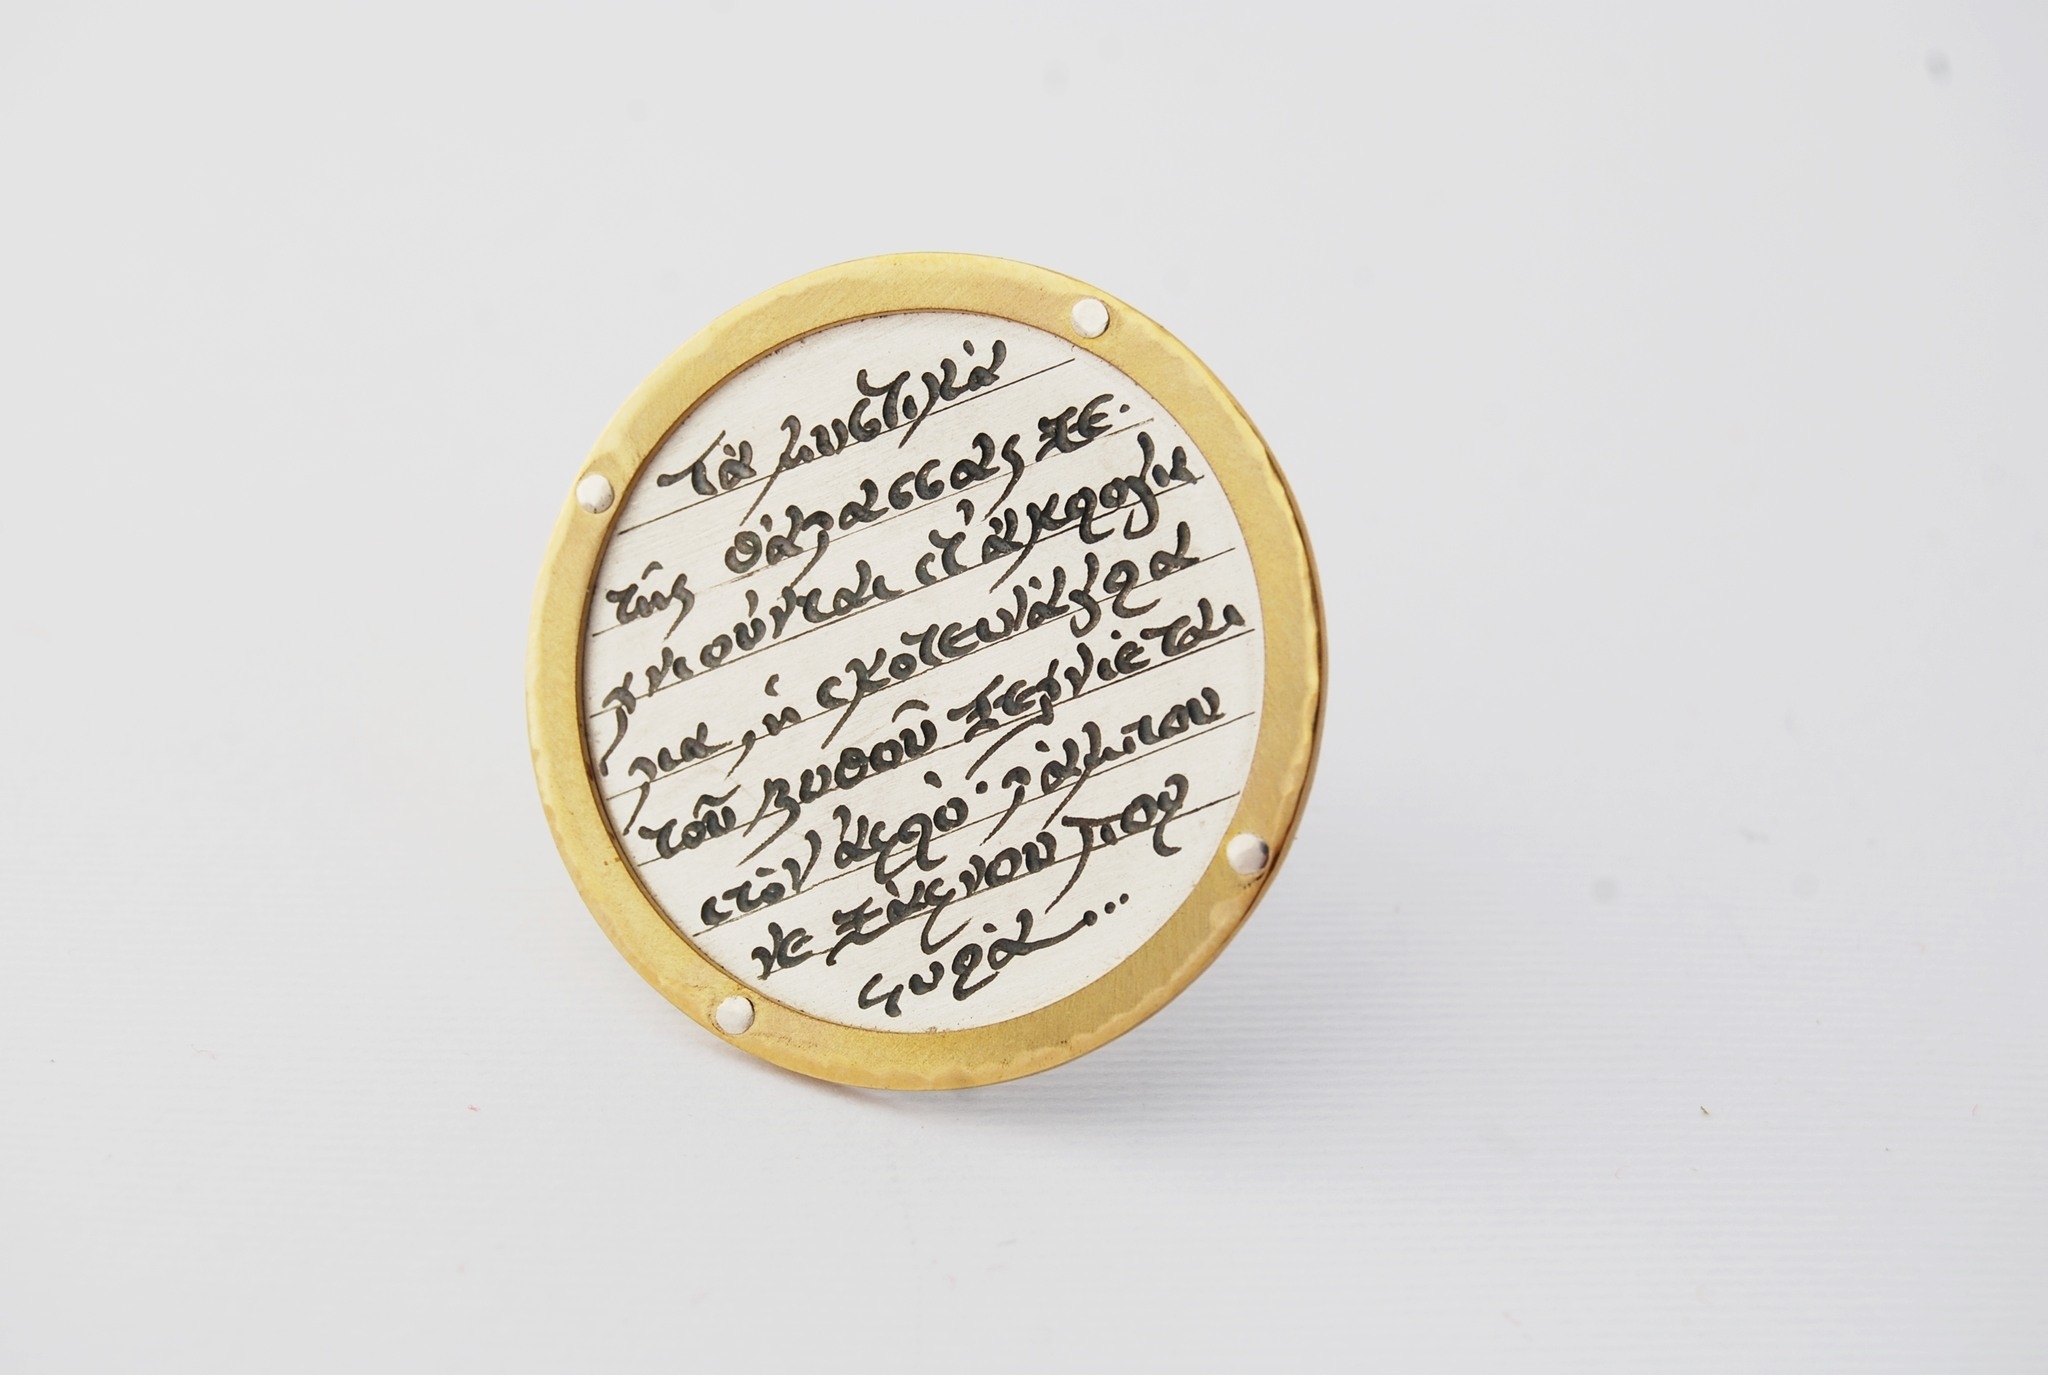 Τὰ μυστικὰ
τῆς θάλασσας ξε.
χνιούνται στ' ἀκρογιά
λια, ἡ σκοτεινάγρα
τοῦ βυθοῦ ξεχνιέται
στὸν ἀφρό· λάμπου
νε ξάφνου πορ
φυρὰ...